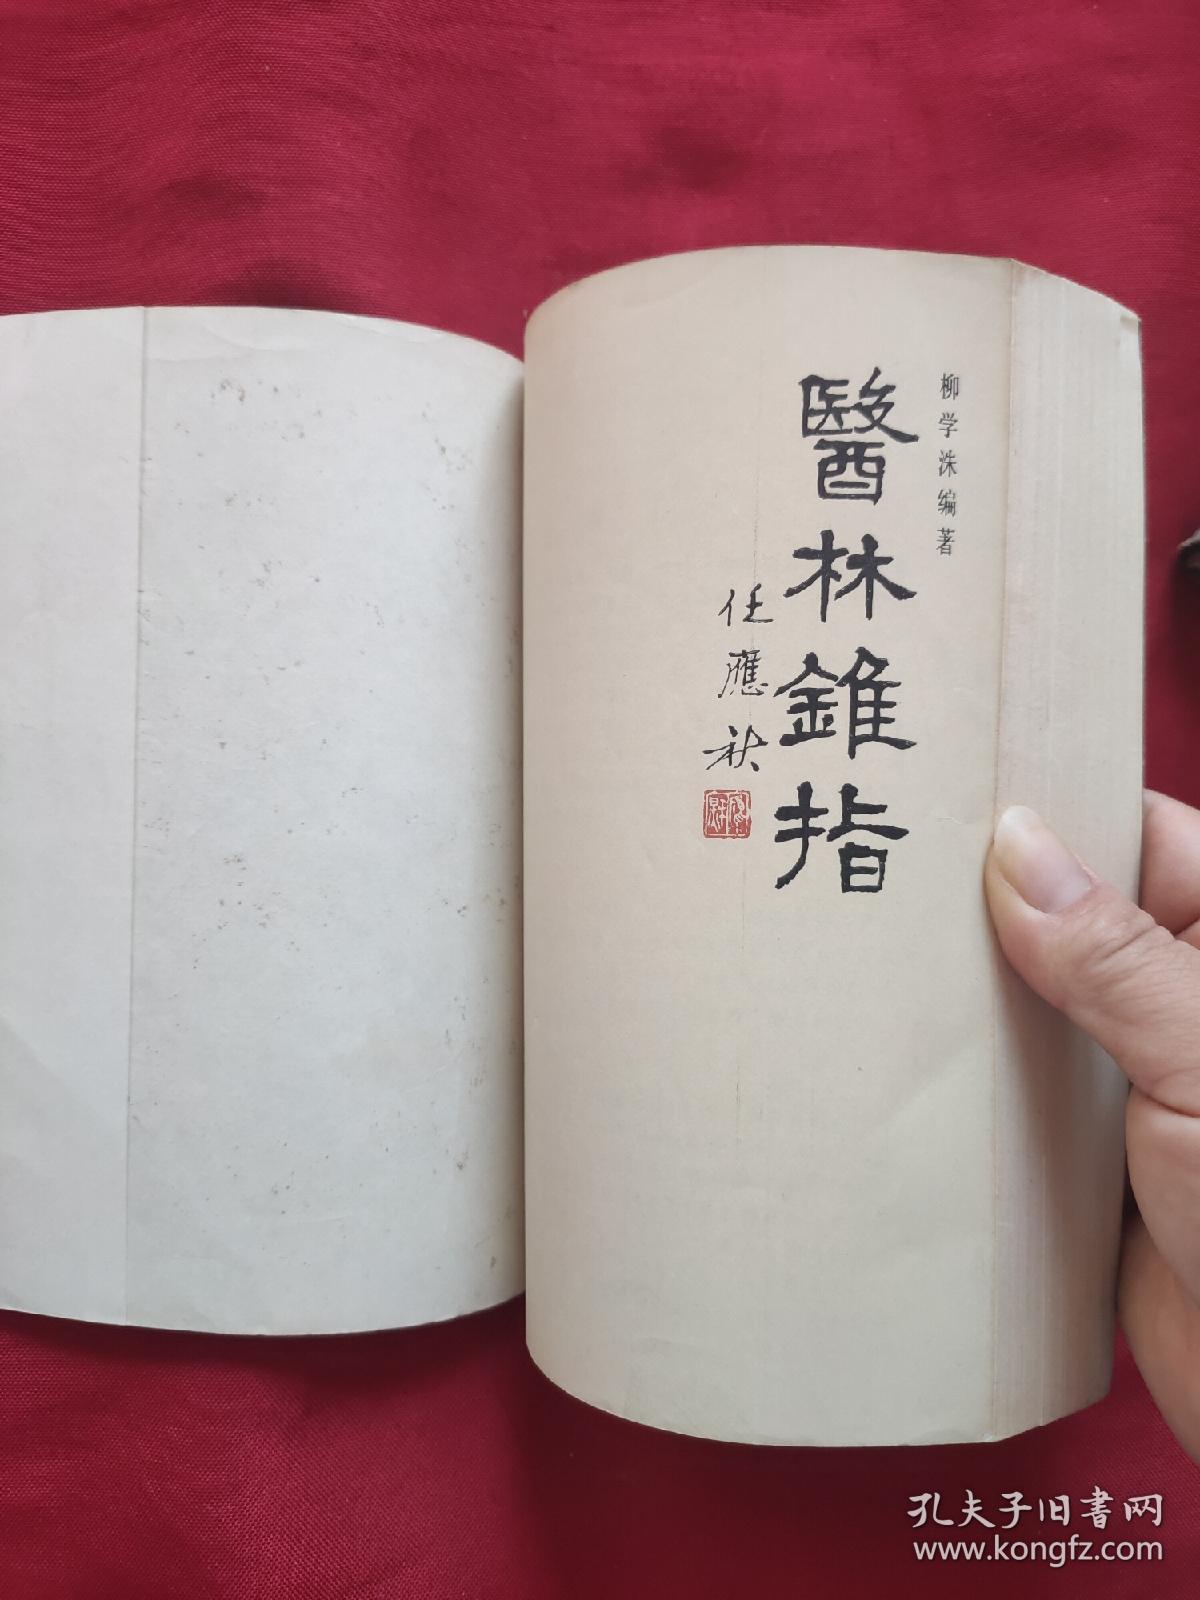 柳学洙编著
醫林錐指
任應秋
孔夫子旧書网
www.kongfz.com